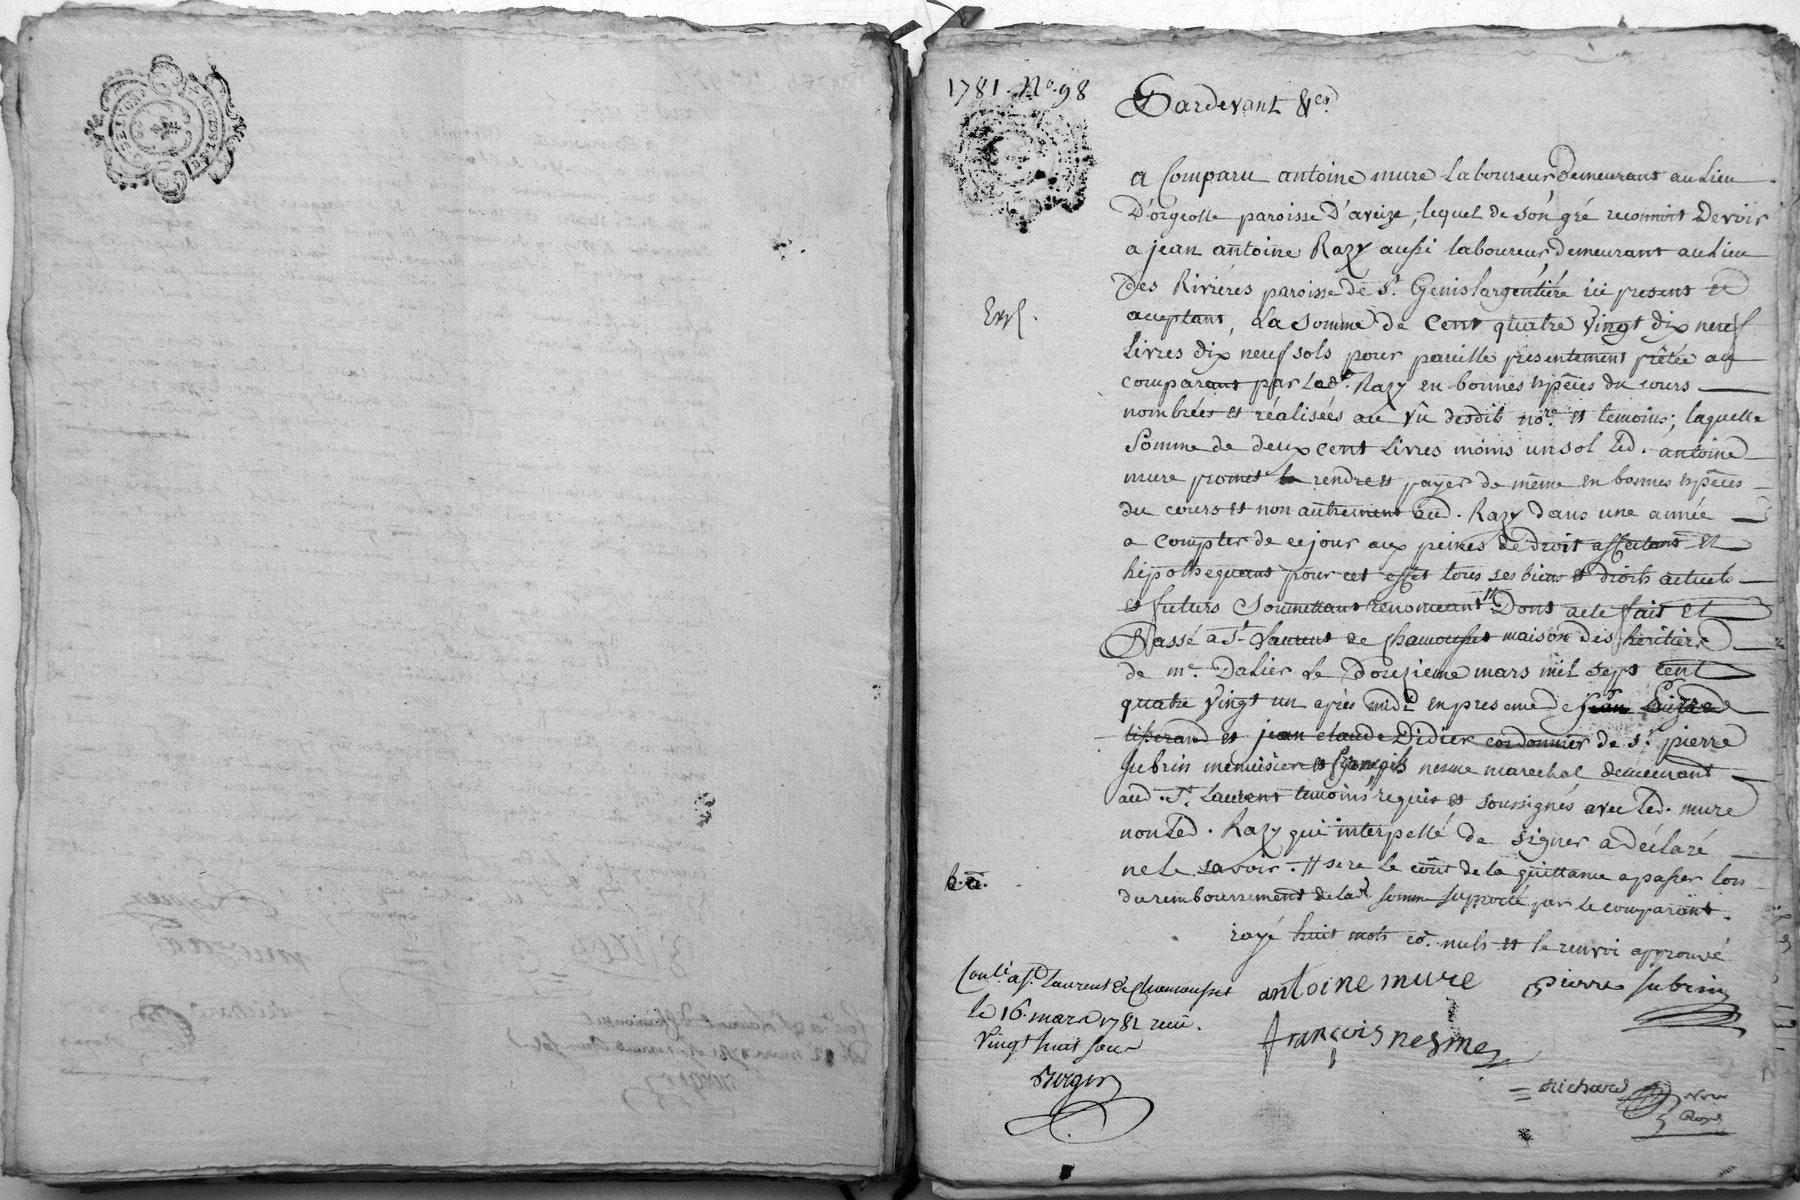 1781. No. 98
Pardevant &ca.
a Comparu antoine mure Laboureur Demeurant au Lieu
D'orgeolle paroisse D'aveize, lequel de son gré reconnoit Devoir
a jean antoine Razy aussi laboureur, demeurant au Lieu
Des Riviéres paroisse de St. Genis largentiére ici present et
Exp.
acceptant, La somme de Cent quatre Vingt dix neuf
Livres dix neuf sols pour pareille presentement prêtée au
comparant par Led. Razy en bonnes espéces du cours
nombrées et réalisées au vû desdits nore. et temoins; laquelle
Somme de deux cent Livres moins un sol Led. antoine
mure promet rendre et payer de même en bonnes espéces
du cours et non autrement aud. Razy dans une année
a Compter de ce jour aux peines de Droit affectant et
hipothequant pour cet effet tous ses biens et droits actuels
et futurs Soumettant renonceant # Dont acte fait et
Passé a St. Laurent de Chamousset maison des heritiers
de me. Dalier Le Douzieme mars mil sept Cent
quatre Vingt un après midi en presence de jean
tisserand et jean claude Didier cordonnier de sr. pierre
Subrin menuisier et François nesme marechal demeurant
aud. St. Laurent temoins requis et soussignés avec Led. mure
non Led. Razy qui interpellé de signer a Déclaré
b.a.
ne Le savoir. # sera le coût de la quittance a passer lors
du remboursement de lad. somme supporté par le comparant.
rayé huit mots nuls et le renvoi approuvé
Conlé. a St. Laurent de Chamousset
le 16. mars 1781 recu.
Vingt huit sous
Berger
antoine mure
pierre subrin
françois nesme
Richard
Nore
Royal